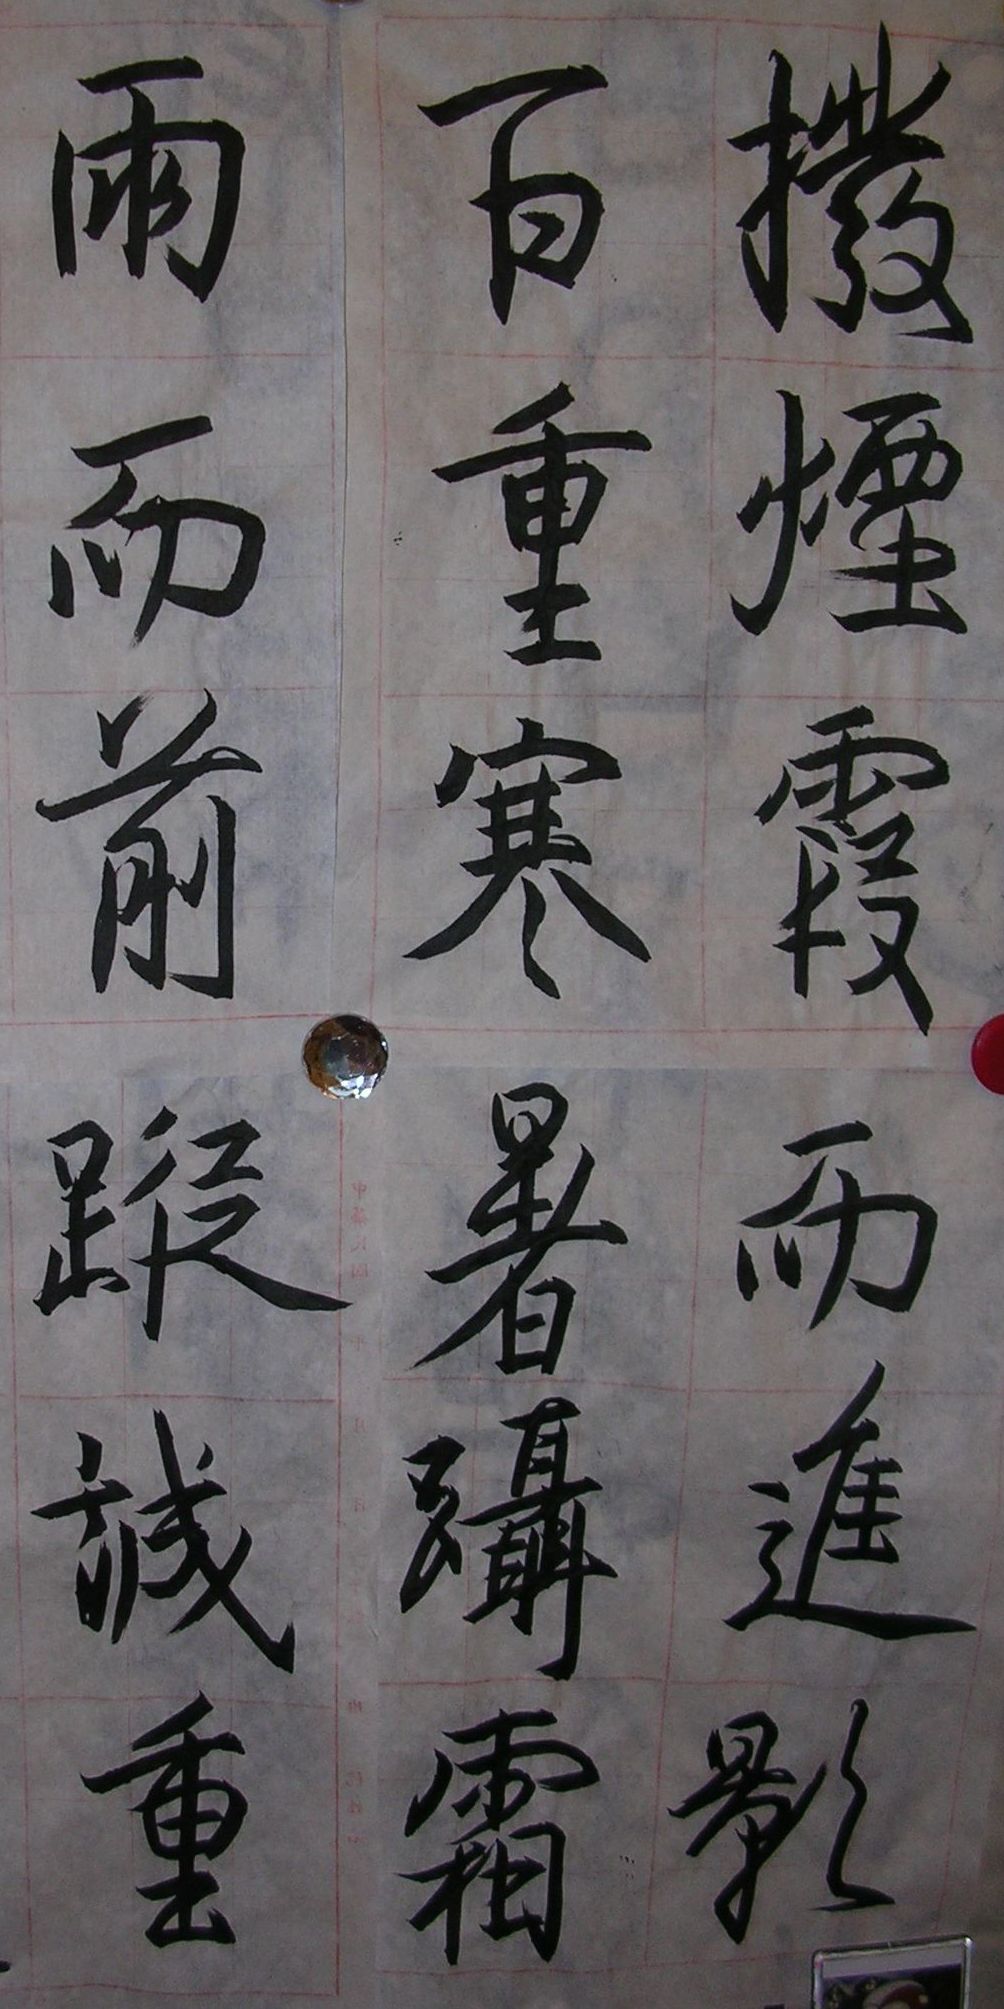 撥煙霞而進影
百重寒暑躡霜
雨而前蹤誠重